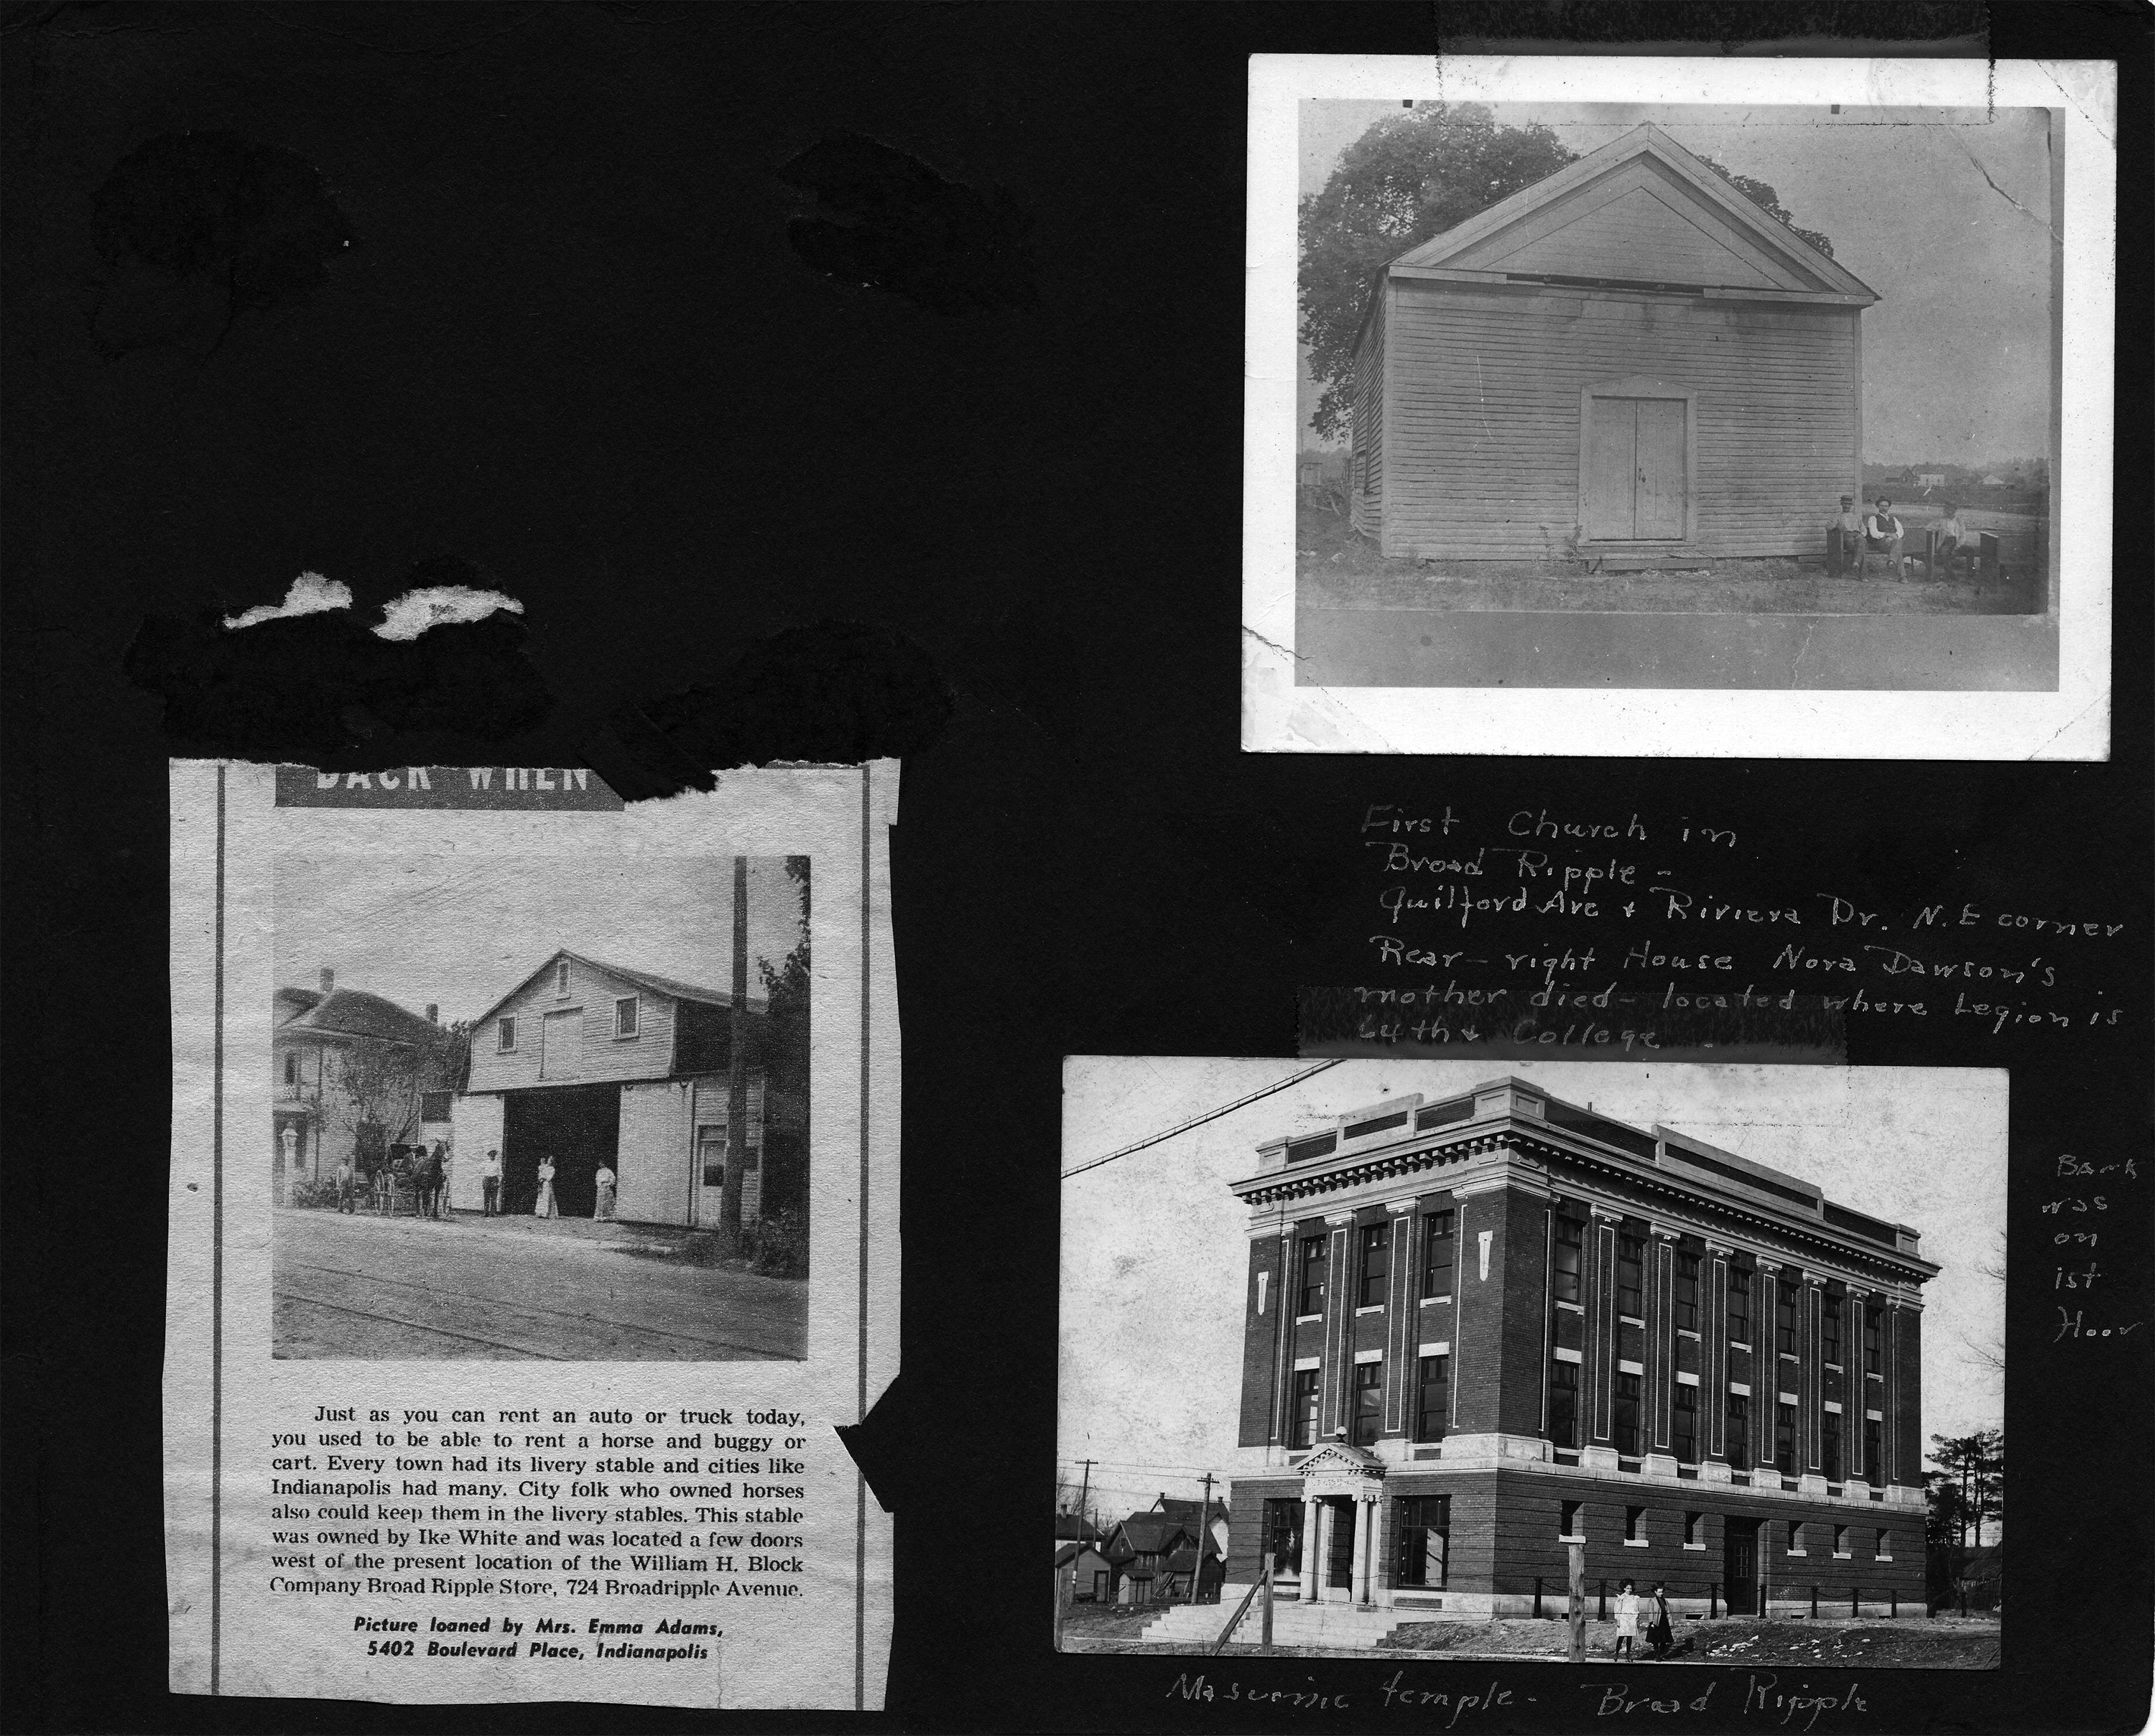 BACK WHEN
Just as you can rent an auto or truck today,
you used to be able to rent a horse and buggy or
cart. Every town had its livery stable and cities like
Indianapolis had many. City folk who owned horses
also could keep them in the livery stables. This stable
was owned by Ike White and was located a few doors
west of the present location of the William H. Block
Company Broad Ripple Store, 724 Broadripple Avenue.
Picture loaned by Mrs. Emma Adams,
5402 Boulevard Place, Indianapolis
First Church in
Broad Ripple -
Guilford Ave + Riviera Dr. N.E corner
Rear - right House Nora Dawson's
mother died - located where Legion is
64th + College -
Bank
was
on
ist
floor
Masonic temple - Broad Ripple